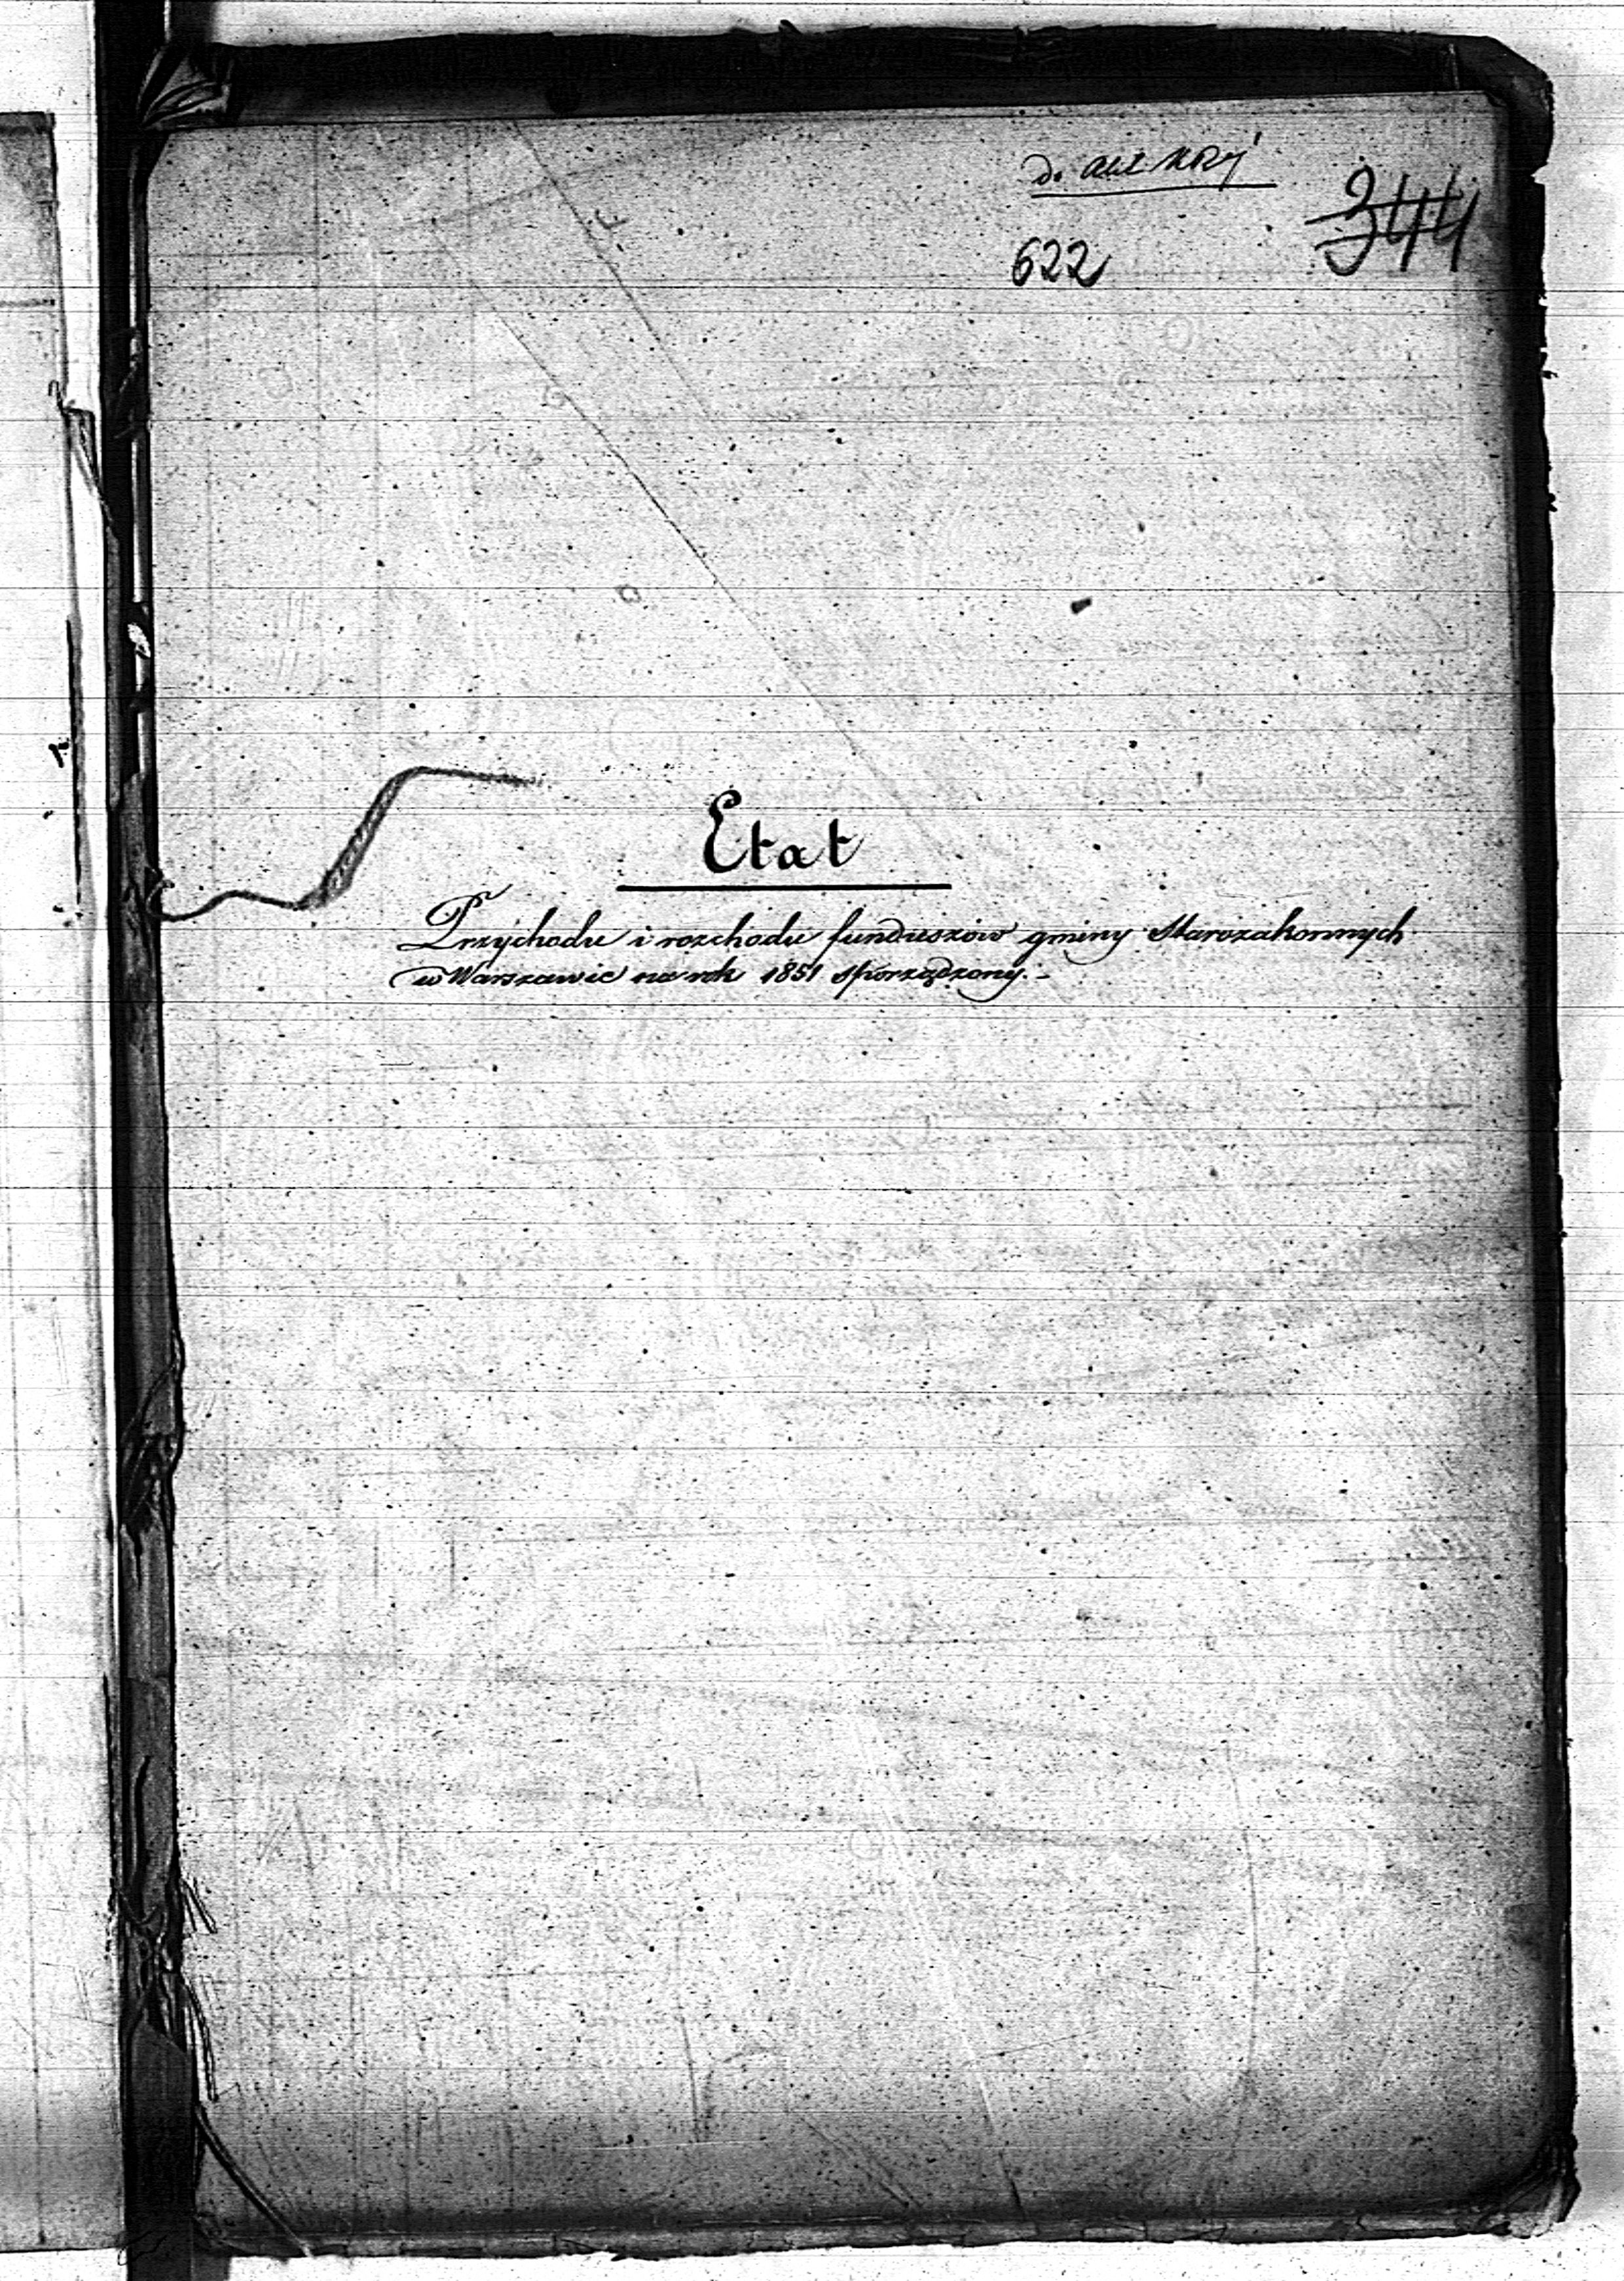 622
344
Etat
Przychodu i rozchodu funduszów gminy Starozakonnych
w Warszawie na rok 1851 sporządzony.-